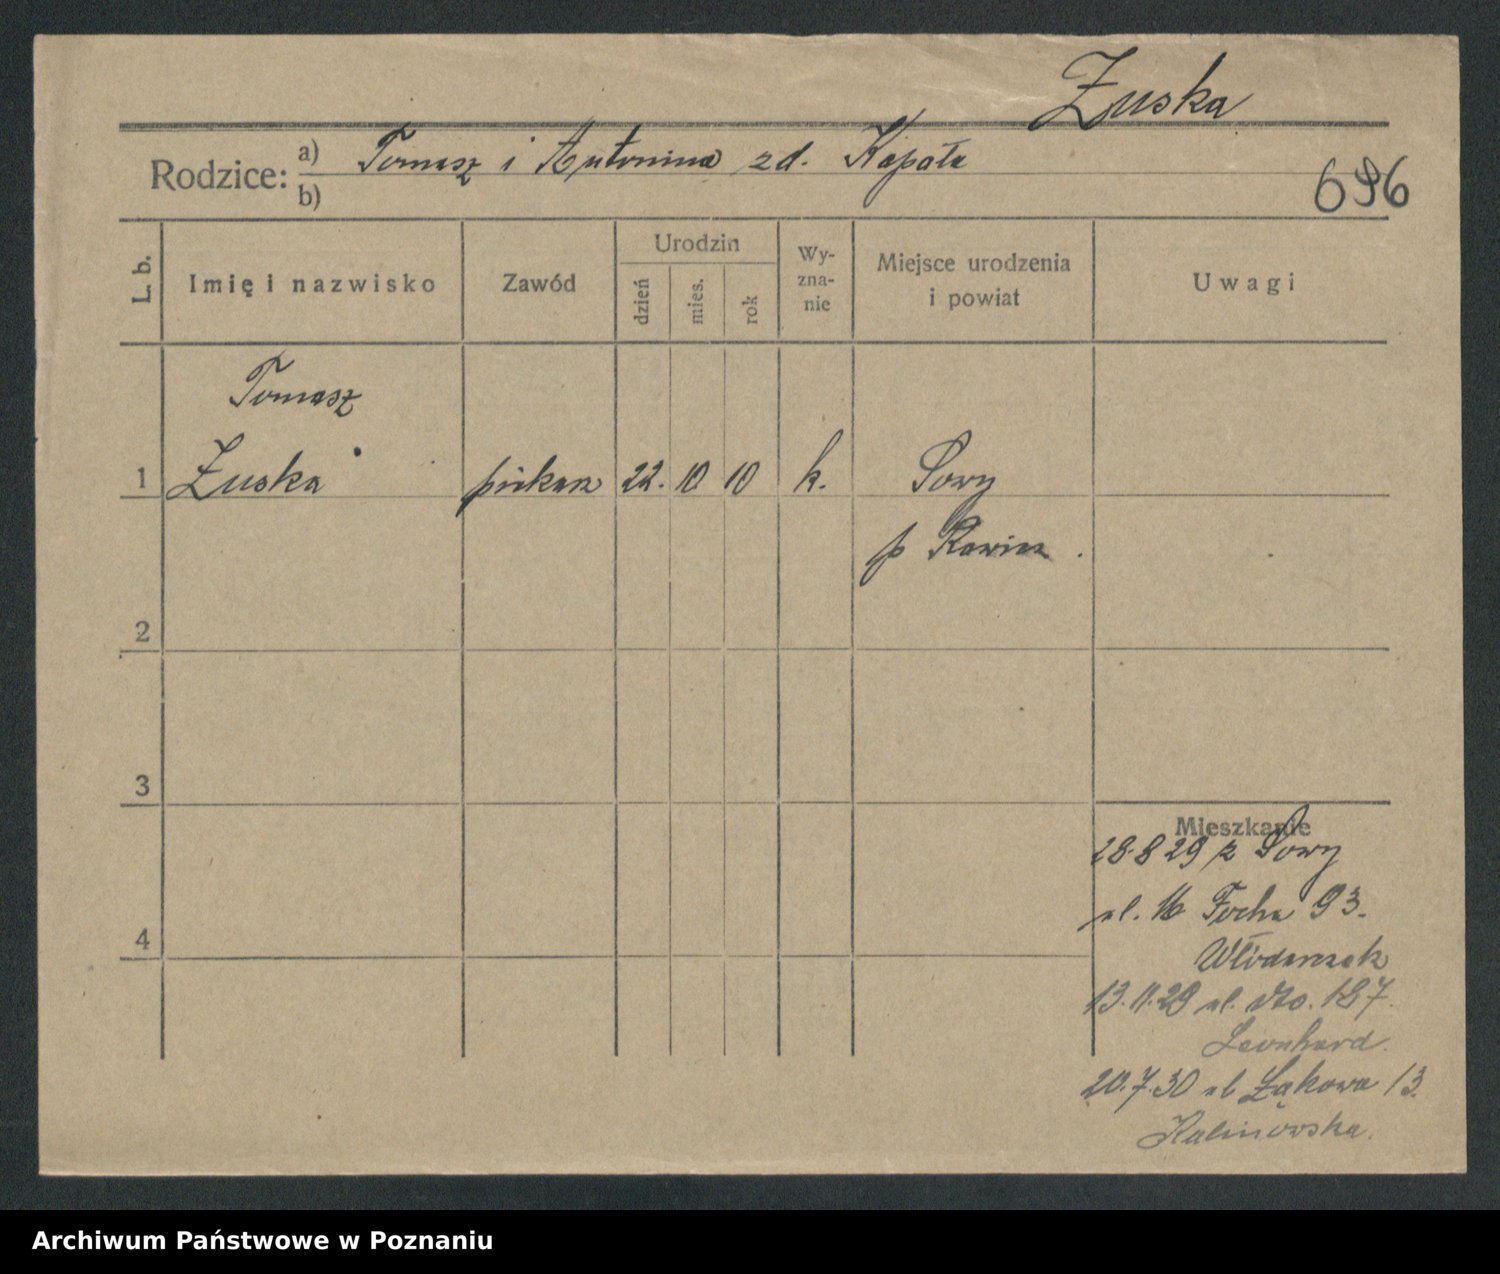 Żuska
Rodzice: a) Tomasz i Antonina zd. Kapała
b)
696
L. b.
Imię i nazwisko
Zawód
Urodzin
dzień
mies.
rok
Wy-
zna-
nie
Miejsce urodzenia
i powiat
Uwagi
Tomasz
1 Żuska piekarz 22. 10 10 k. Sowy
p Rawicz.
2
3
Mieszkanie
28.8 29 z Sowy
ul. M Focha 93.
Włodarczak
4
13.11.29 ul. dto. 187.
Leonhard.
20.7.30 ul Łąkowa 13.
Kalinowska.
Archiwum Państwowe w Poznaniu